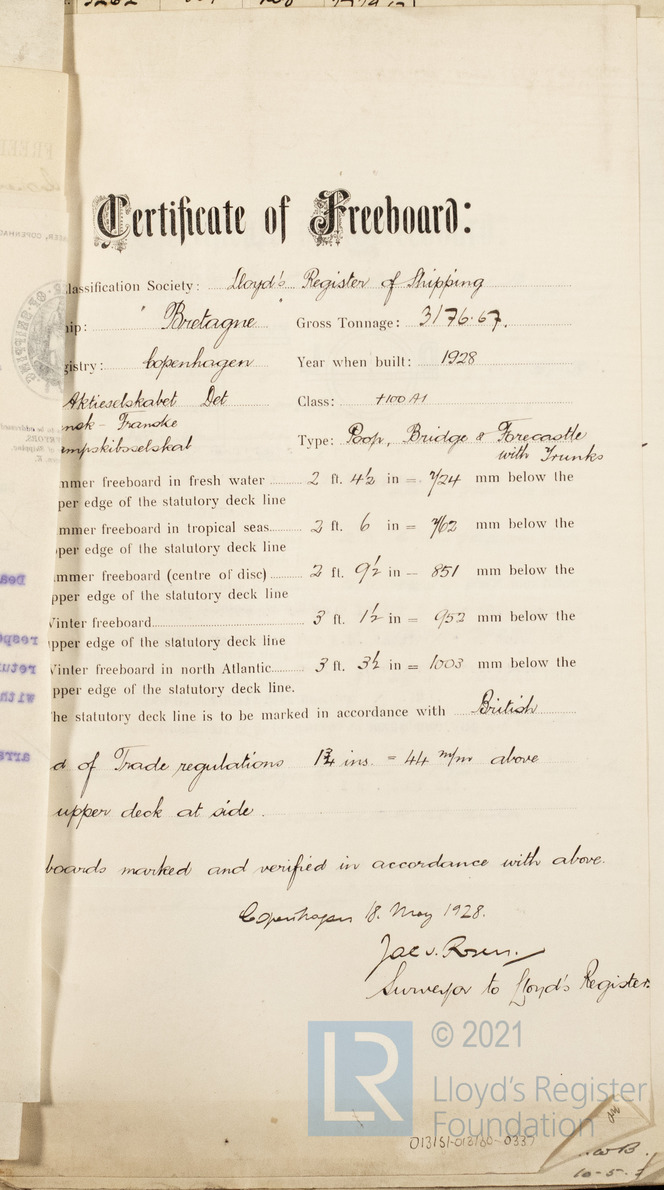 Certificate of Freeboard:
lassification Society: Lloyd's Register of Shipping
hip: "Bretagne Gross Tonnage: 3176.67.
gistry: Copenhagen Year when built: 1928
Aktieselskabet Det Class: +100 A1
nsk-Franske
ampskibsselskab Type: Poop, Bridge & Forecastle
with Trunks
mmer freeboard in fresh water 2 ft. 4½ in = 724 mm below the
per edge of the statutory deck line
mmer freeboard in tropical seas 2 ft. 6 in = 762 mm below the
per edge of the statutory deck line
mmer freeboard (centre of disc) 2 ft. 9½ in - 851 mm below the
pper edge of the statutory deck line
Vinter freeboard 3 ft. 1½ in = 952 mm below the
upper edge of the statutory deck line
Vinter freeboard in north Atlantic 3 ft. 3½ in = 1003 mm below the
pper edge of the statutory deck line.
he statutory deck line is to be marked in accordance with British
d of Trade regulations 1¾ ins. = 44 m/m above
upper deck at side.
boards marked and verified in accordance with above.
Copenhagen 18. May 1928.
Surveyor to Lloyd's Register.
LR
© 2021
Lloyd's Register
Foundation
013151-013160-0337
W.B.
10-5-